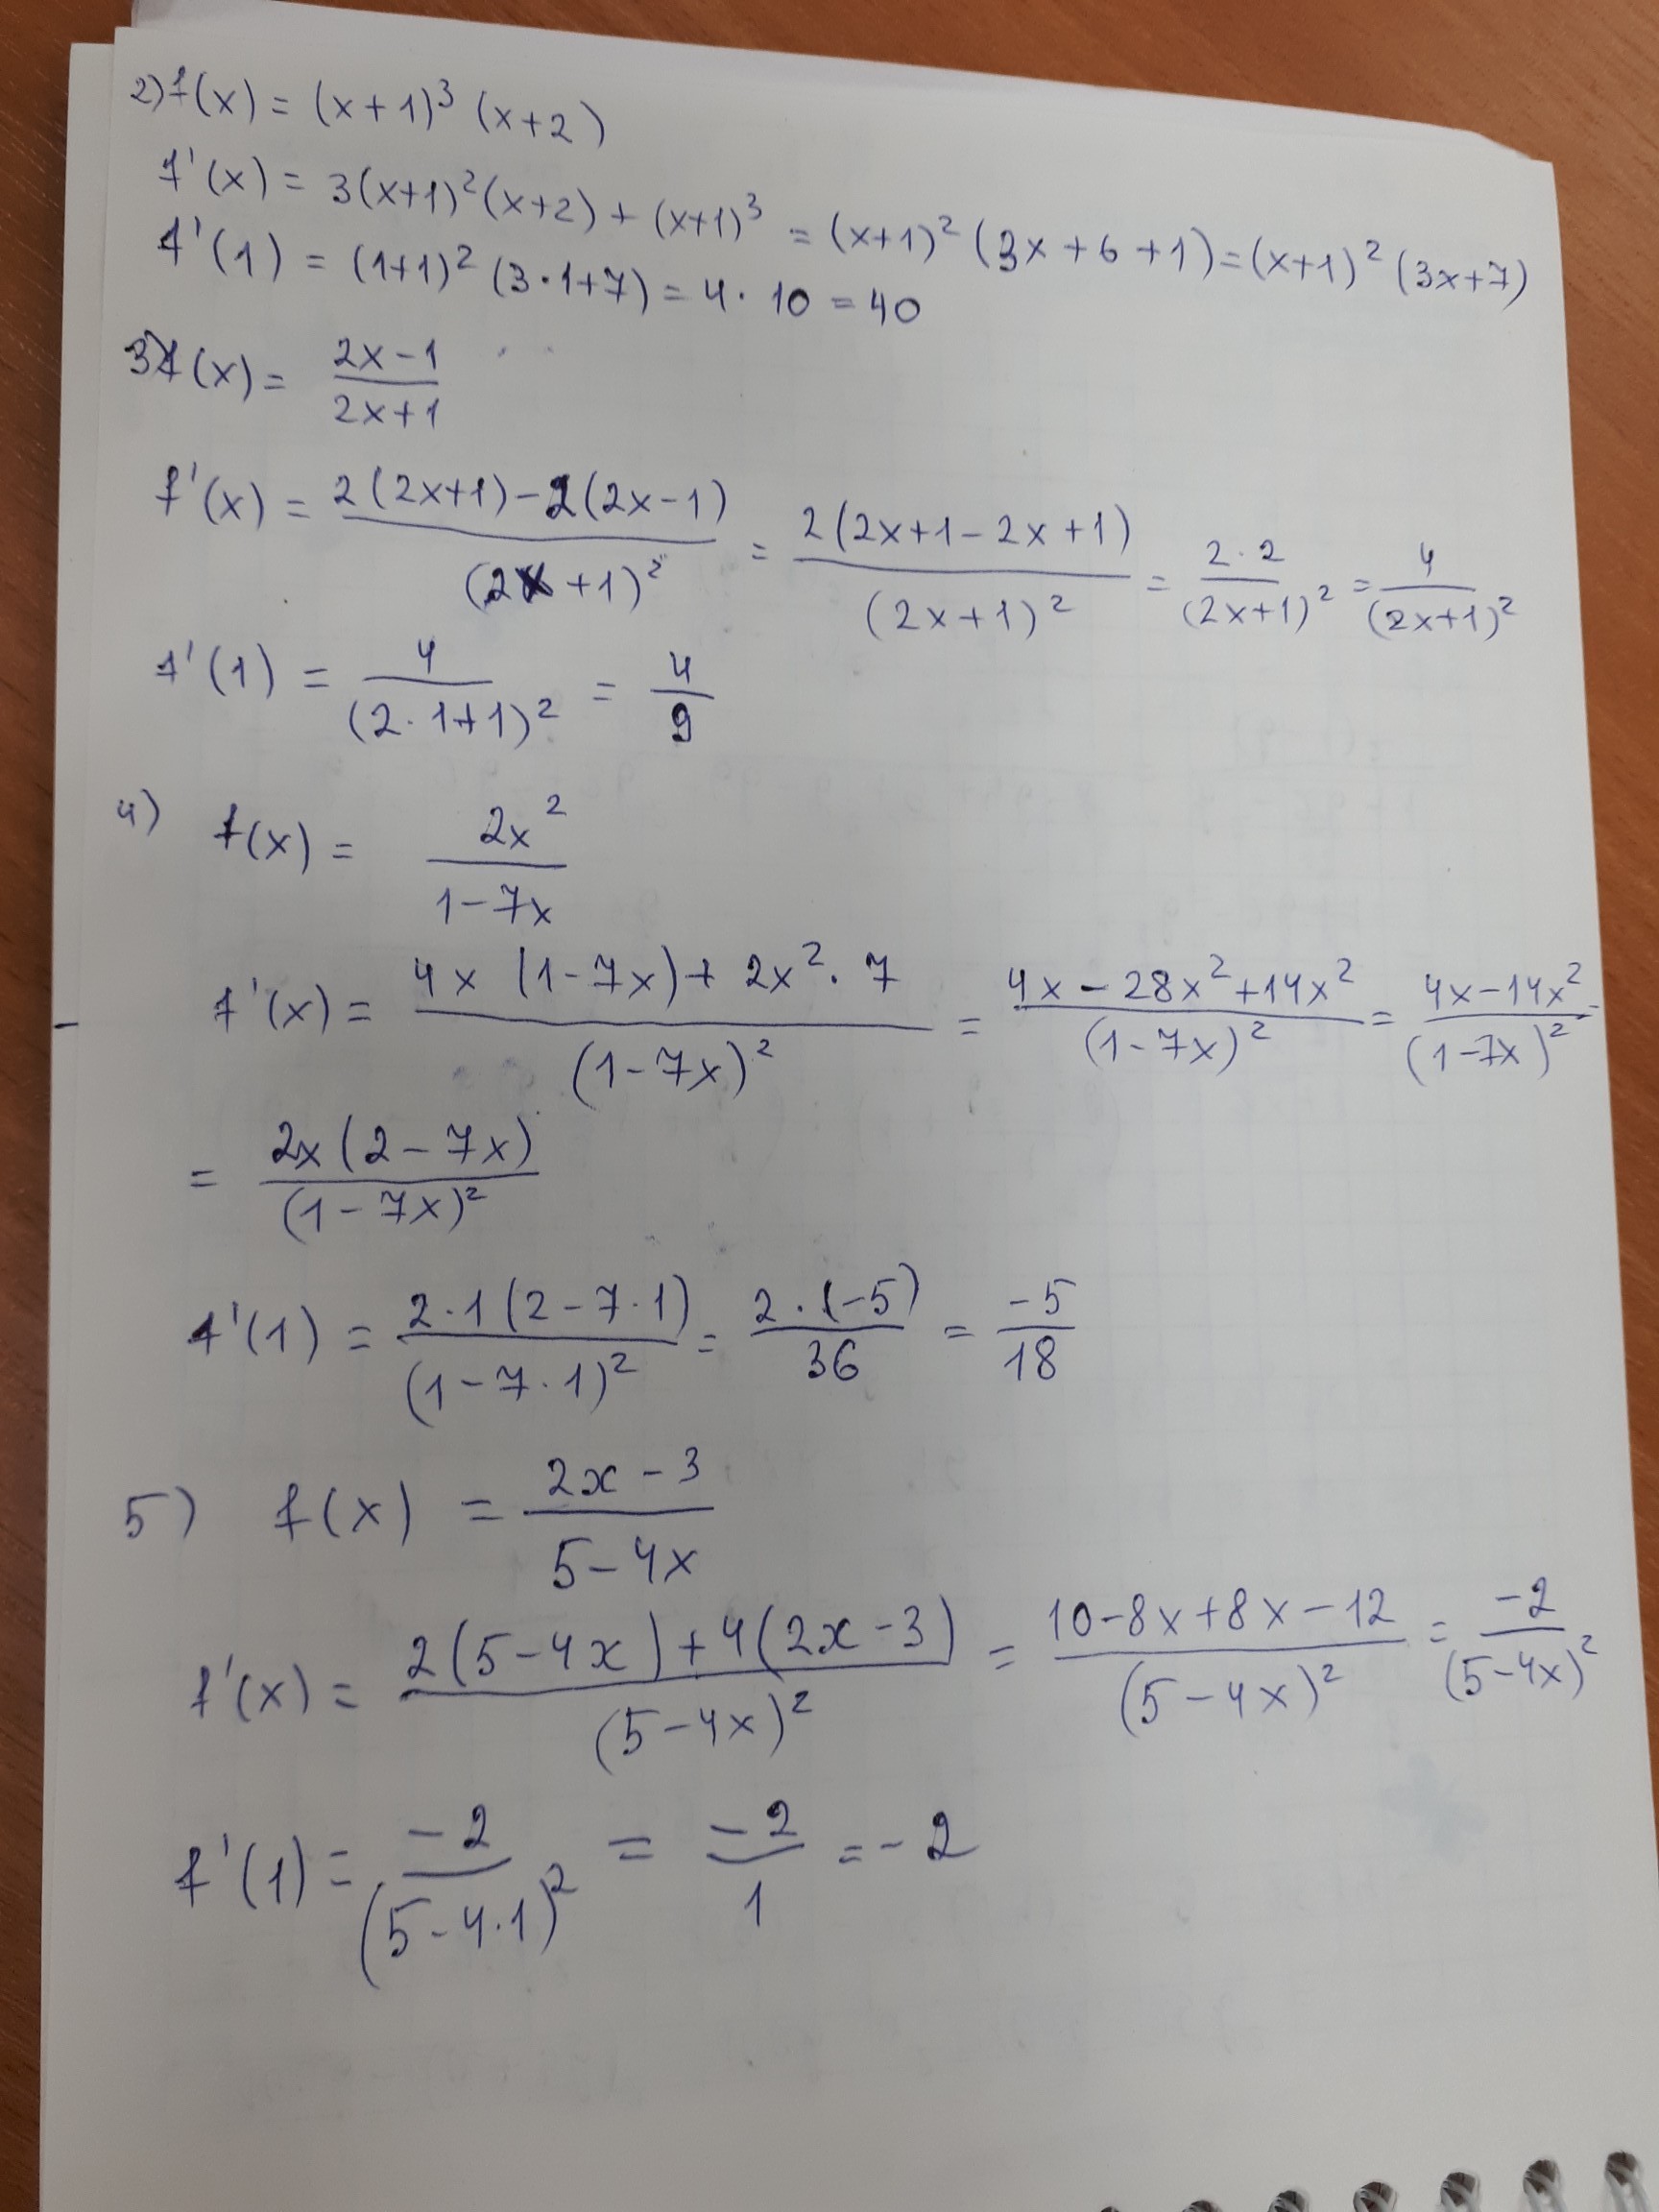 2) f(x) = (x+1)³ (x+2)
f'(x) = 3(x+1)²(x+2) + (x+1)³ = (x+1)² (3x+6+1) = (x+1)² (3x+7)
f'(1) = (1+1)² (3·1+7) = 4·10 = 40
3) f(x) = (2x-1)/(2x+1)
f'(x) = (2(2x+1)-2(2x-1))/(2x+1)² = (2(2x+1-2x+1))/(2x+1)² = (2·2)/(2x+1)² = 4/(2x+1)²
f'(1) = 4/(2·1+1)² = 4/9
4) f(x) = 2x²/(1-7x)
f'(x) = (4x(1-7x)+2x²·7)/(1-7x)² = (4x-28x²+14x²)/(1-7x)² = (4x-14x²)/(1-7x)²
= (2x(2-7x))/(1-7x)²
f'(1) = (2·1(2-7·1))/(1-7·1)² = (2·(-5))/36 = -5/18
5) f(x) = (2x-3)/(5-4x)
f'(x) = (2(5-4x)+4(2x-3))/(5-4x)² = (10-8x+8x-12)/(5-4x)² = -2/(5-4x)²
f'(1) = -2/(5-4·1)² = -2/1 = -2